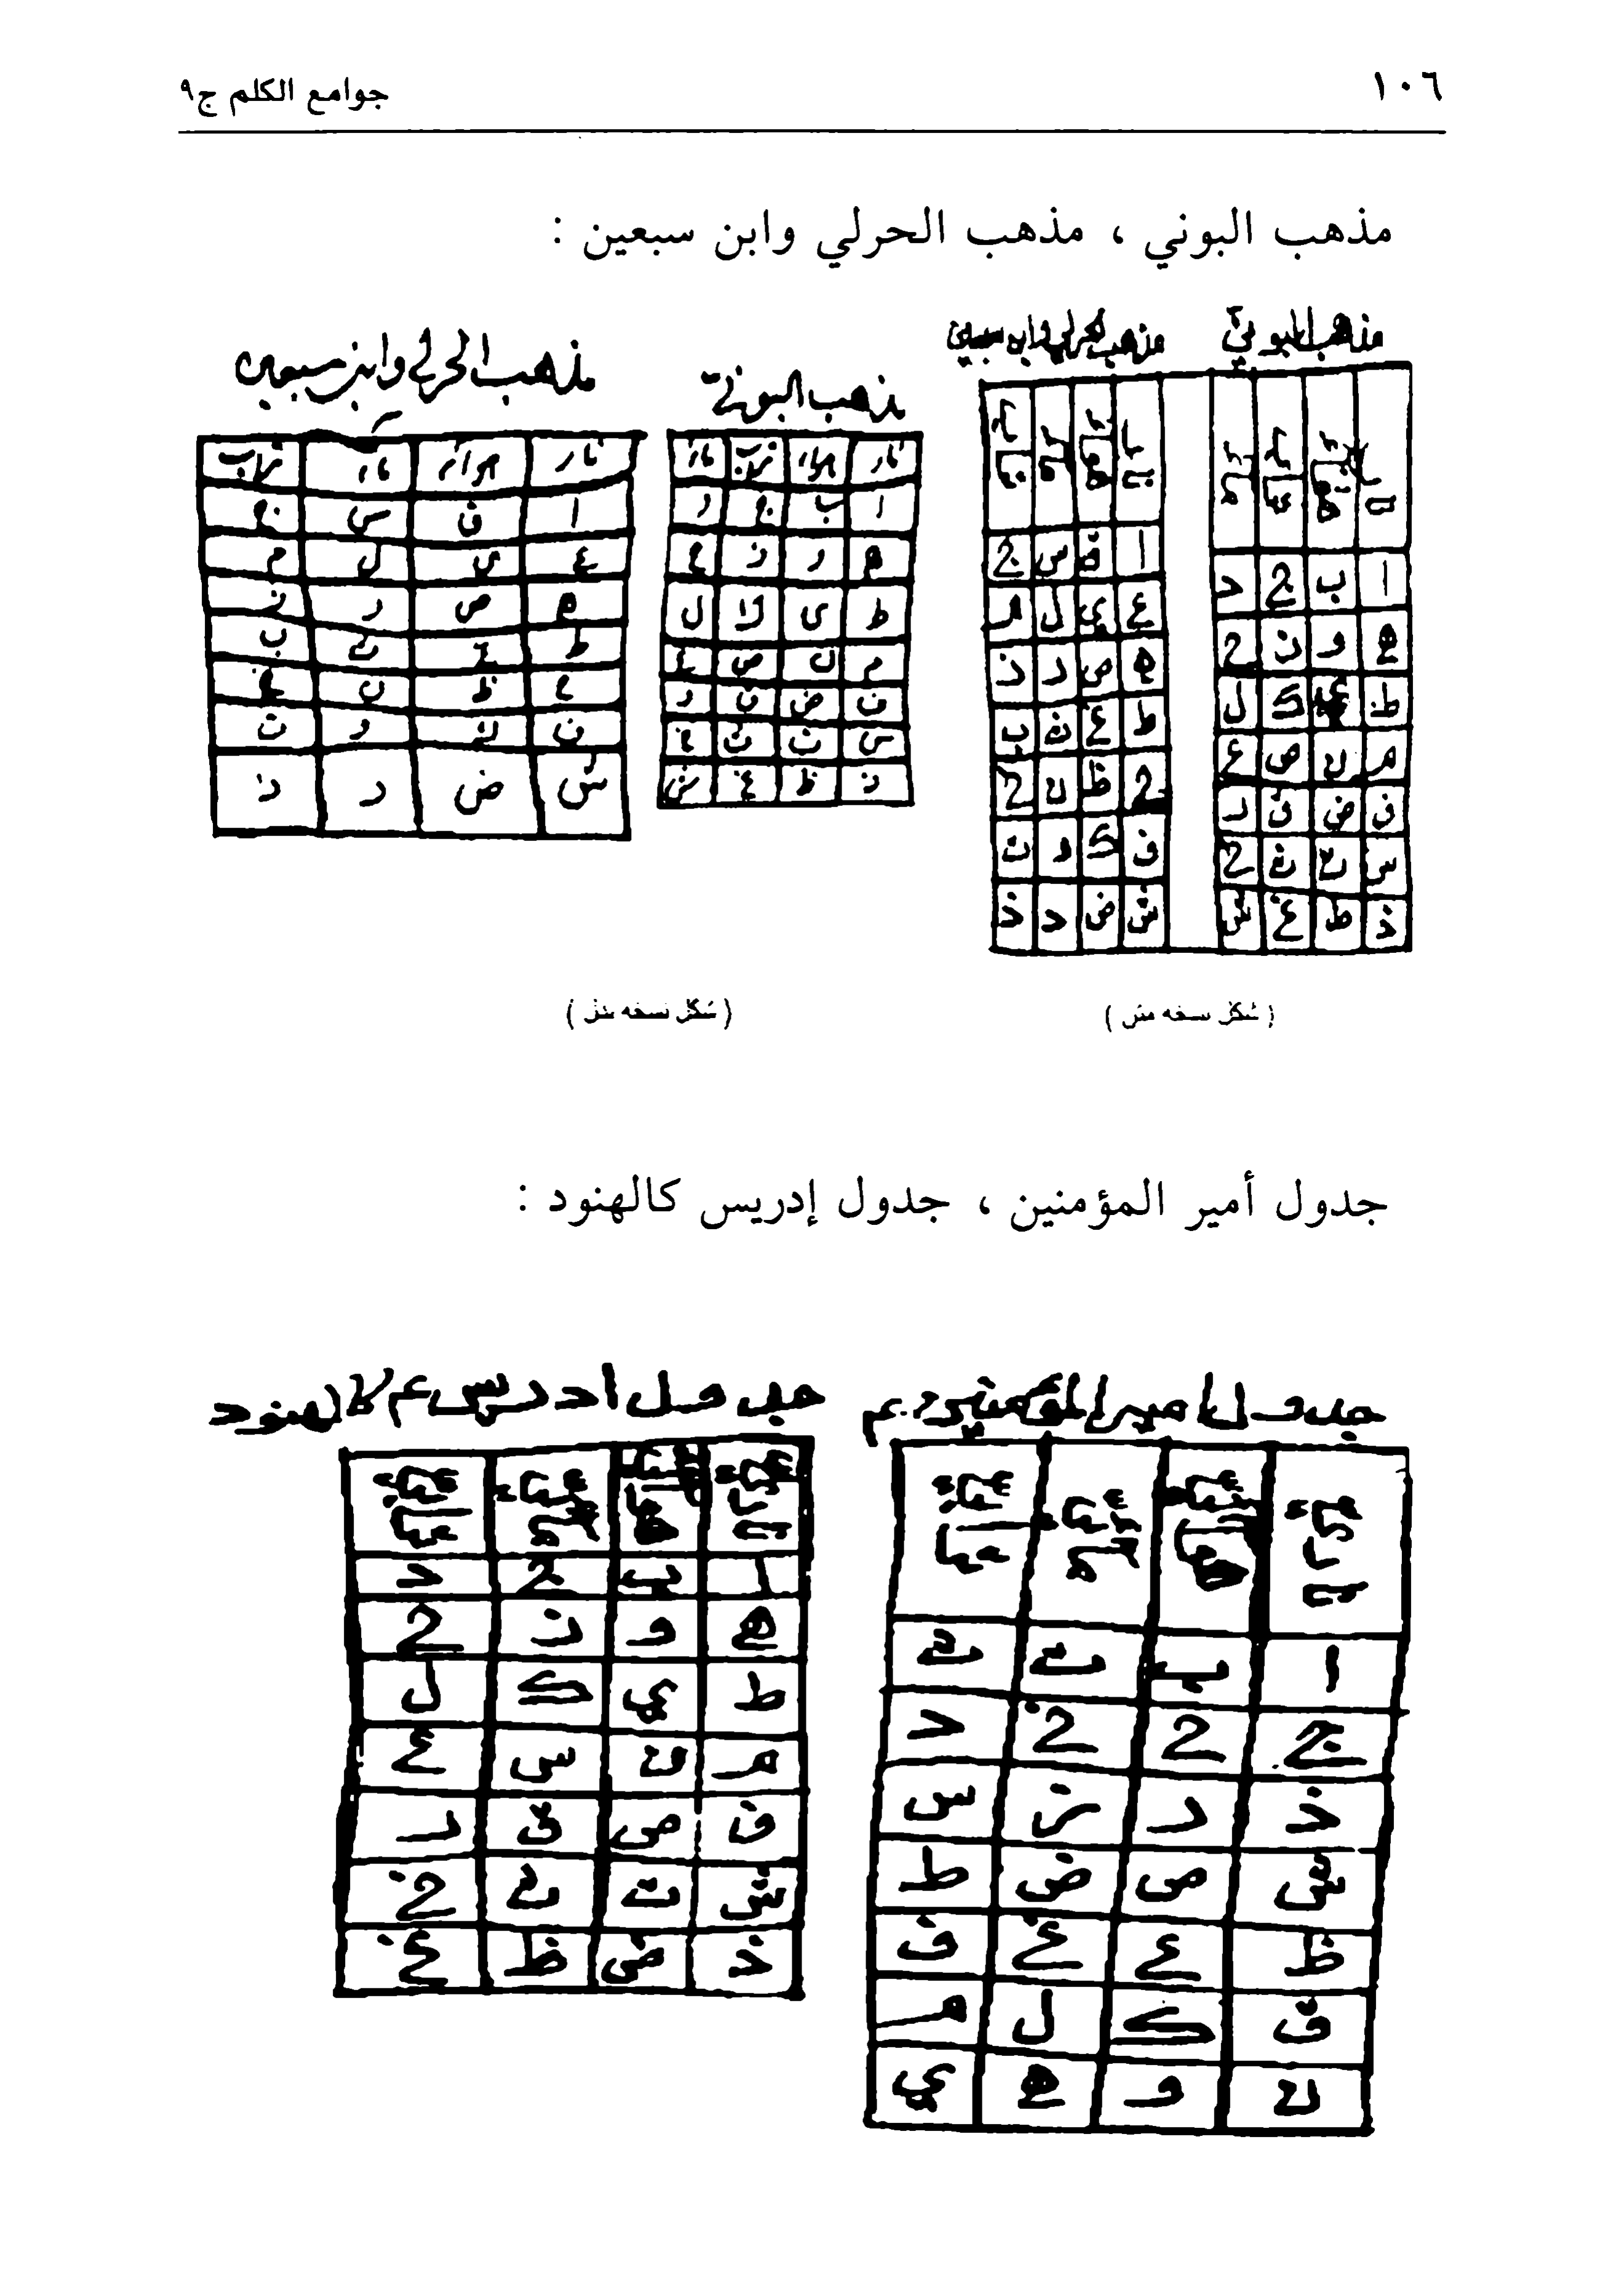 ١٠٦ جوامع الكلم ج٩
مذهب البوني ، مذهب الحرلي وابن سبعين :
مذهب البوني مذهب الحرلي وابن سبعين
ا ب ج د ا ق س ج
ه و ز ح ع ي ل م
ط ي ك ل ه ص ر ز
م ن ص ع ط غ ث ب
ف ض ق ر ح ظ ن خ
س ت ث خ ف ك و ت
ذ ظ غ ش ش ض د ذ
(شكل نسخه مش)
مذهب البوني
نار هواء تراب ماء
ا ب ج د
ه و ز ح
ط ى ك ل
م ن ص ع
ف ض ق ر
س ت ث خ
ذ ظ غ ش
مذهب الحرلي وابن سبعين
نار هواء ماء تراب
ا ق س ج
ع ى ل م
ه ص ر ز
ط غ ث ب
ح ظ ن خ
ف ك و ت
ش ض د ذ
(شكل نسخه شز)
جدول أمير المؤمنين ، جدول إدريس كالهنود :
جدول امير المؤمنين ع
ا ب ت ث
ج ح خ د
ذ ر ز س
ش ص ض ط
ظ ع غ ف
ق ك ل م
ن و ه ي
جدول ادريس ع كالهنود
ا ب ج د
ه و ز ح
ط ي ك ل
م ن س ع
ف ص ق ر
ش ت ث خ
ذ ض ظ غ